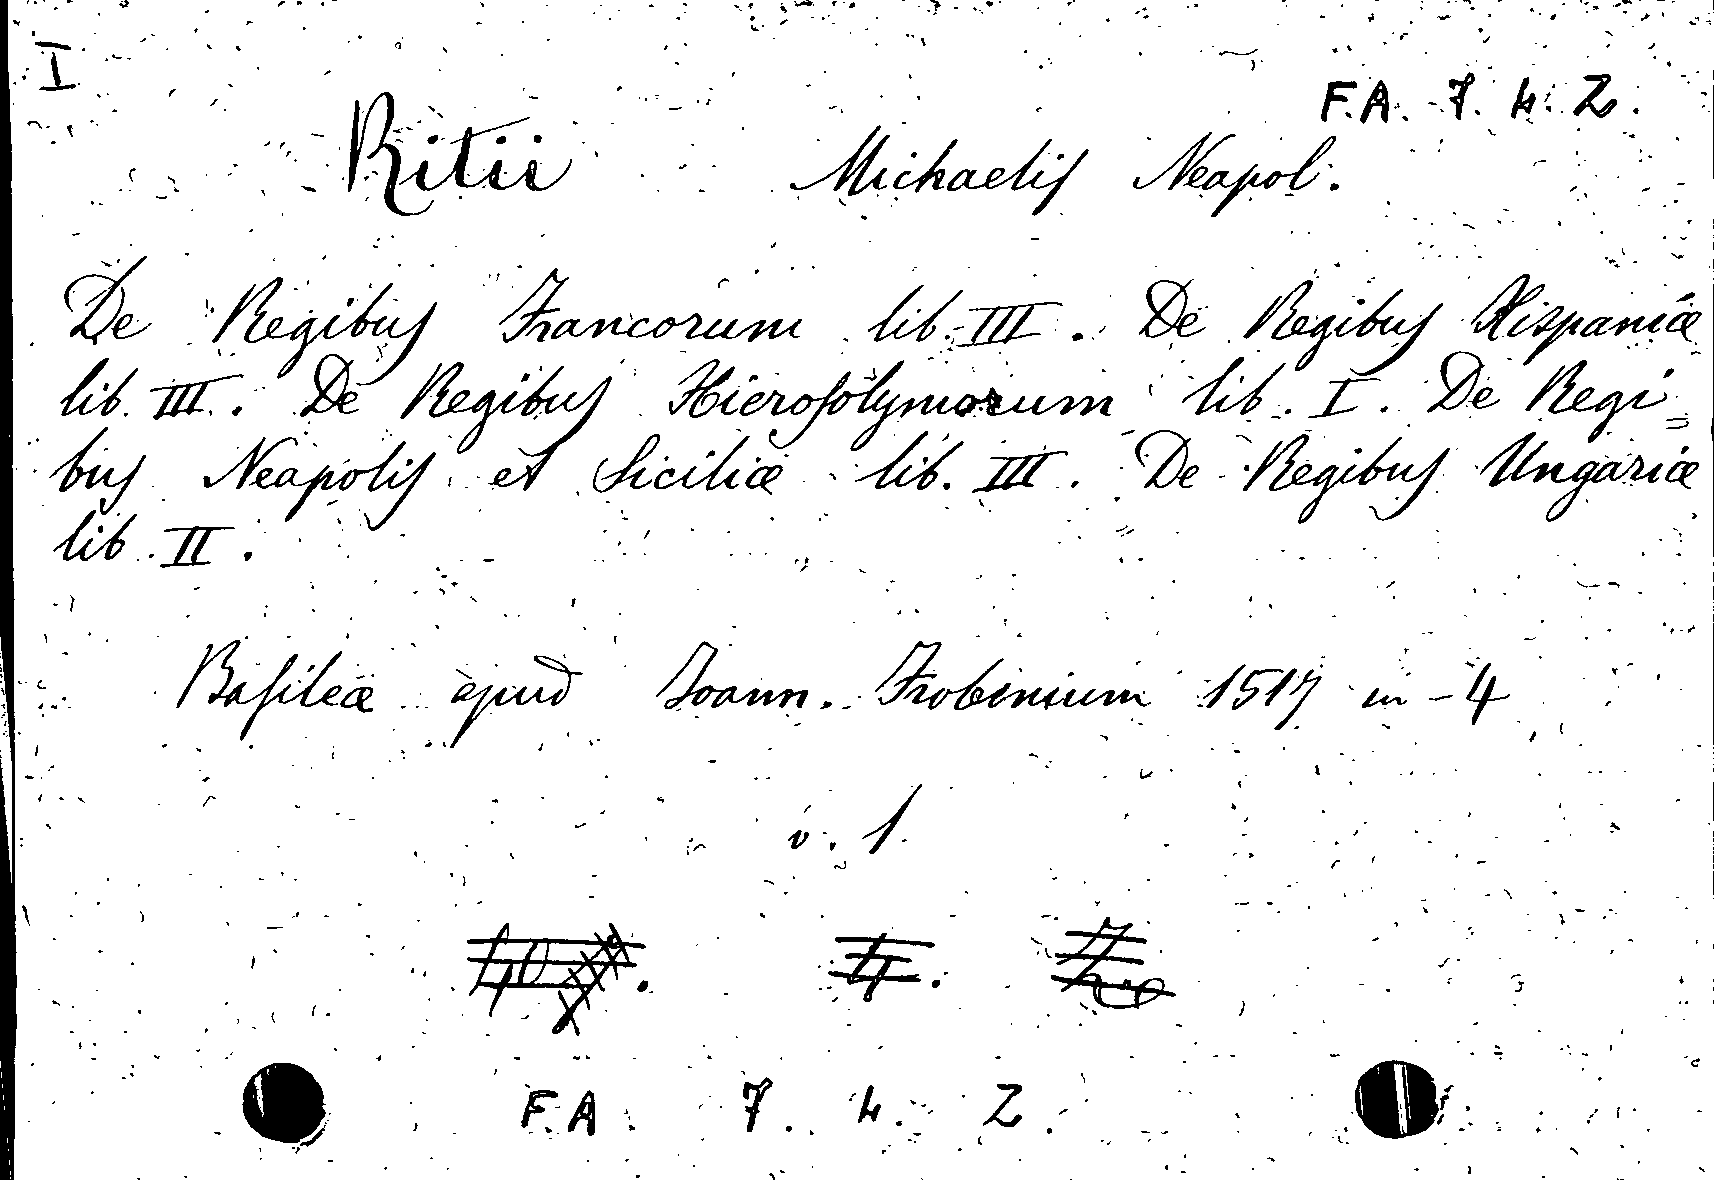 I
F.A. 7. 4. 2.
Ritii Michaelis Neapol.
De Regibus Francorum lib. III. De Regibus Hispaniæ
lib. III. De Regibus Hierosolymorum lib. I. De Regi=
bus Neapolis et Siciliæ lib. III. De Regibus Ungariæ
lib. II.
Basileæ apud Joann. Frobenium 1517 in-4
v. 1.
F.A. 7. 4. 2.